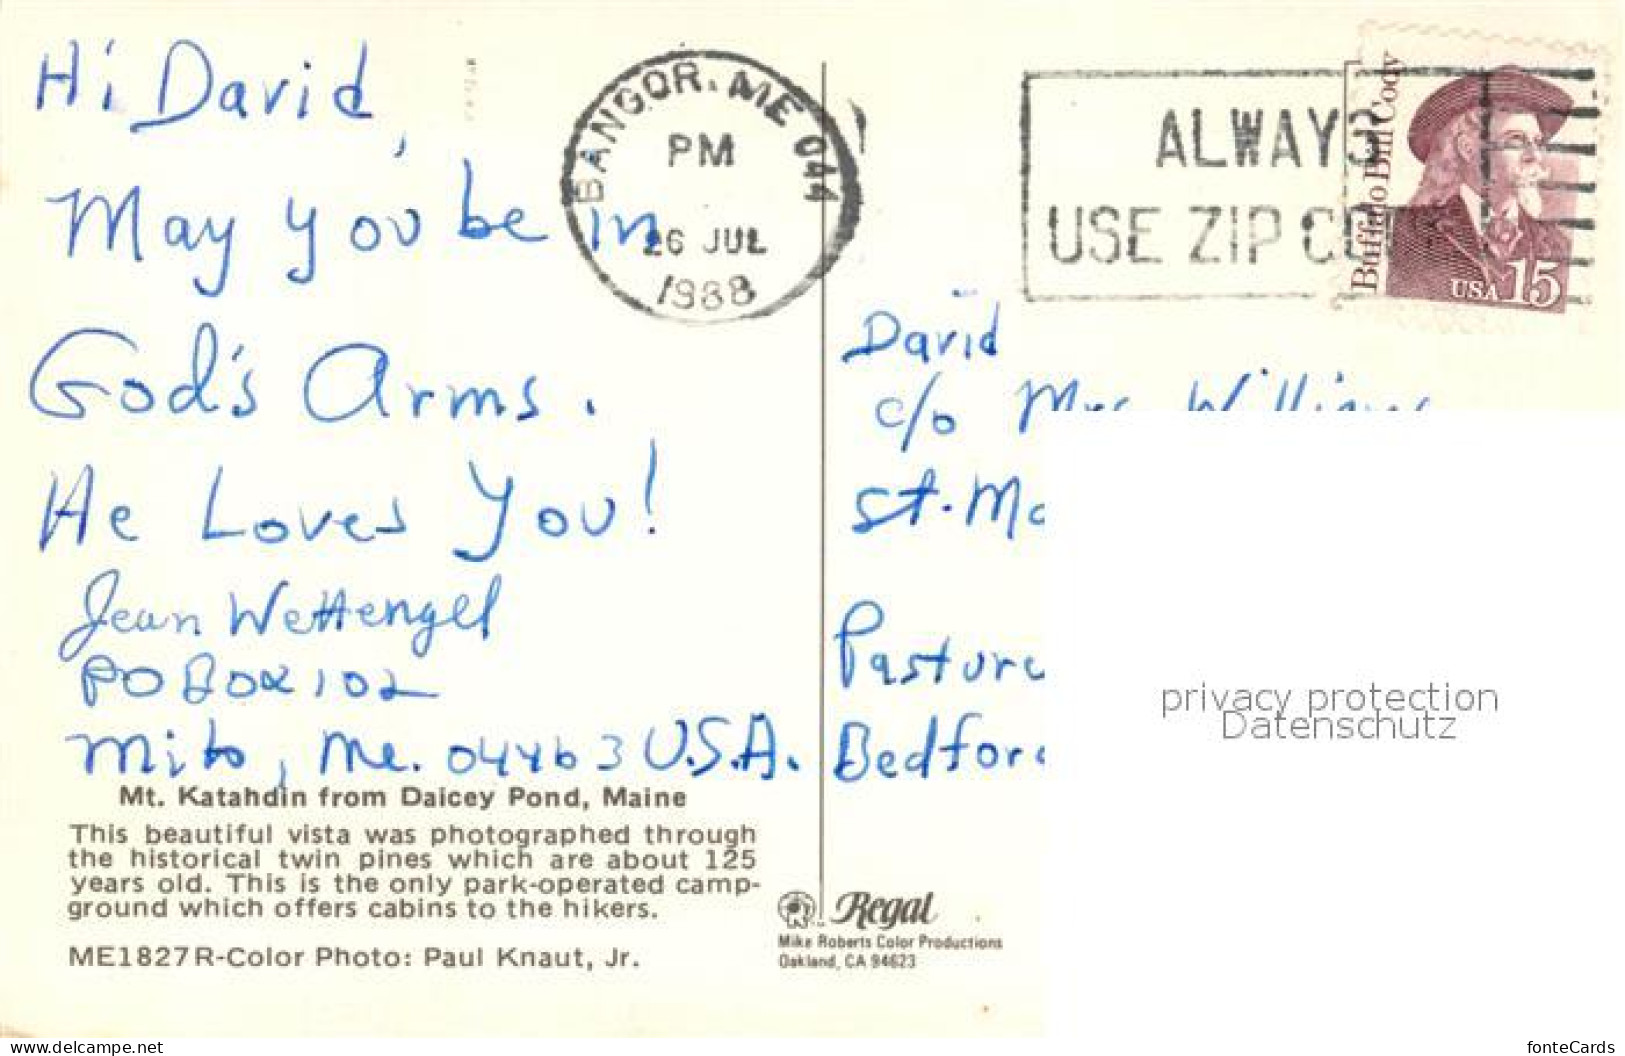 Hi David,
May you be in
God's Arms.
He Loves You!
Jean Wettengel
PO Box 102
Milo, Me. 04463 U.S.A.
Mt. Katahdin from Daicey Pond, Maine
This beautiful vista was photographed through
the historical twin pines which are about 125
years old. This is the only park-operated camp-
ground which offers cabins to the hikers.
ME1827R-Color Photo: Paul Knaut, Jr.
BANGOR, ME 044
PM
26 JUL
1988
ALWAYS
USE ZIP
Buffalo Bill Cody
USA 15
David
c/o Mrs Williams
St.
Bedford
privacy protection
Datenschutz
Regal
Mike Roberts Color Productions
Oakland, CA 94623
www.delcampe.net
fonteCards